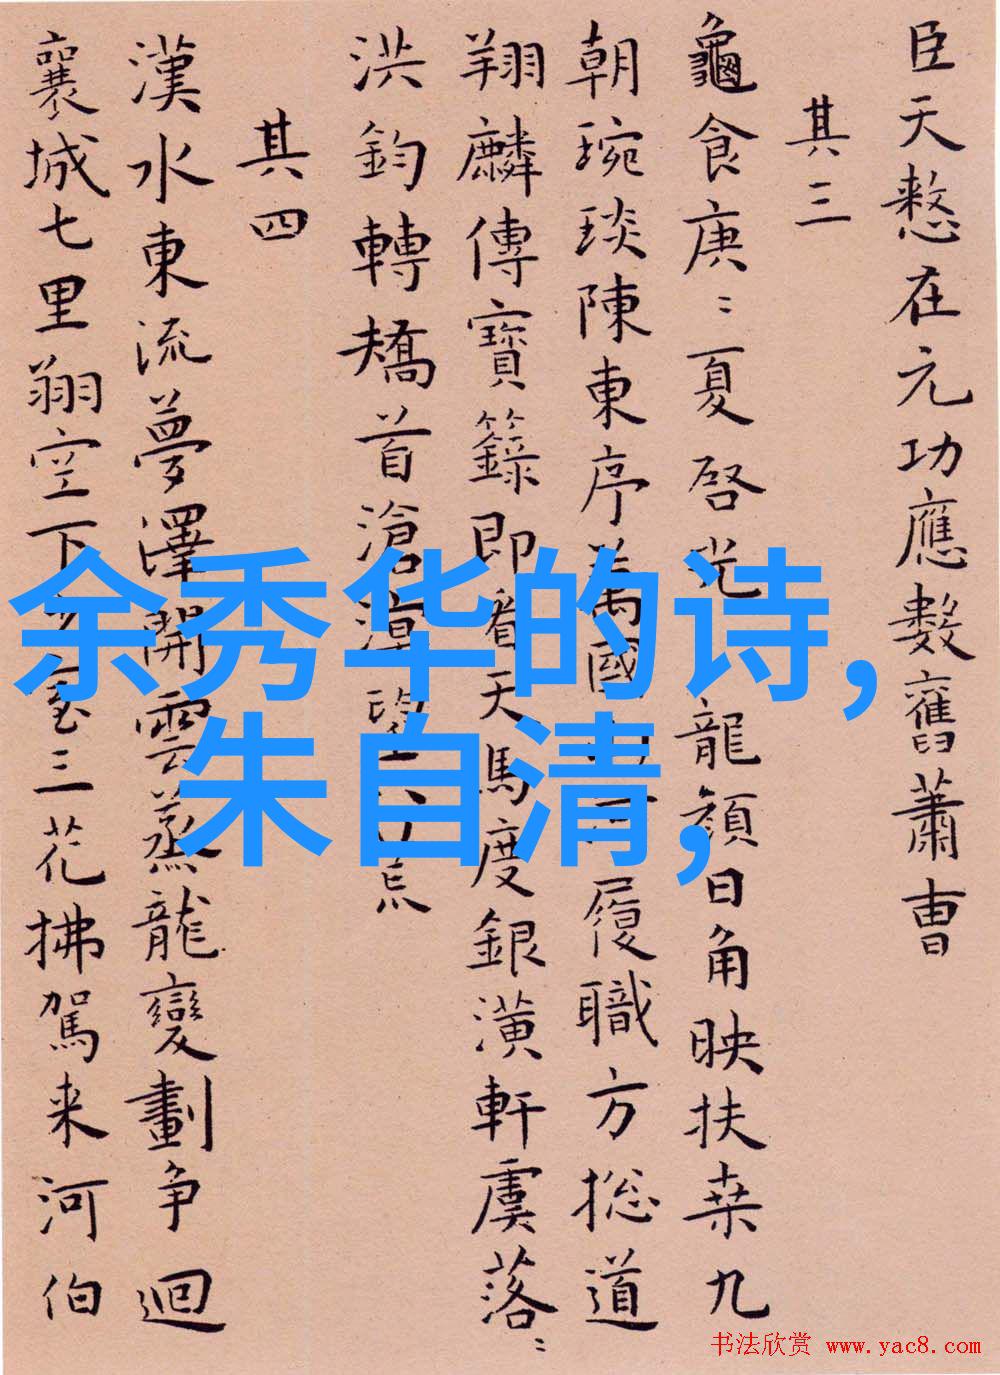 臣天憖在元功應數舊蕭曹
其三
龜食庚〻夏啓光龍顏日角映扶桒九
朝琬琰陳東序萬國履職方揔道
翔麟傳寶籙即看天馬度銀潢軒虞落〻
洪鈞轉矯首滄溟望八荒
其四
漢水東流夢澤開雲蒸龍變劃争迴
襄城七里翔空下室三花拂駕来河伯
余秀华的诗,
朱自清,
书法欣赏 www.yac8.com